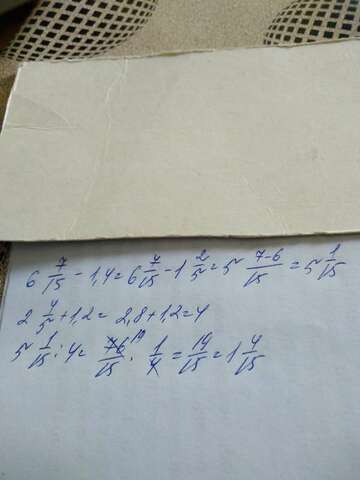 6 7/15 - 1,4 = 6 7/15 - 1 2/5 = 5 7-6/15 = 5 1/15
2 4/5 + 1,2 = 2,8 + 1,2 = 4
5 1/15 : 4 = 76/15 19 · 1/4 = 19/15 = 1 4/15